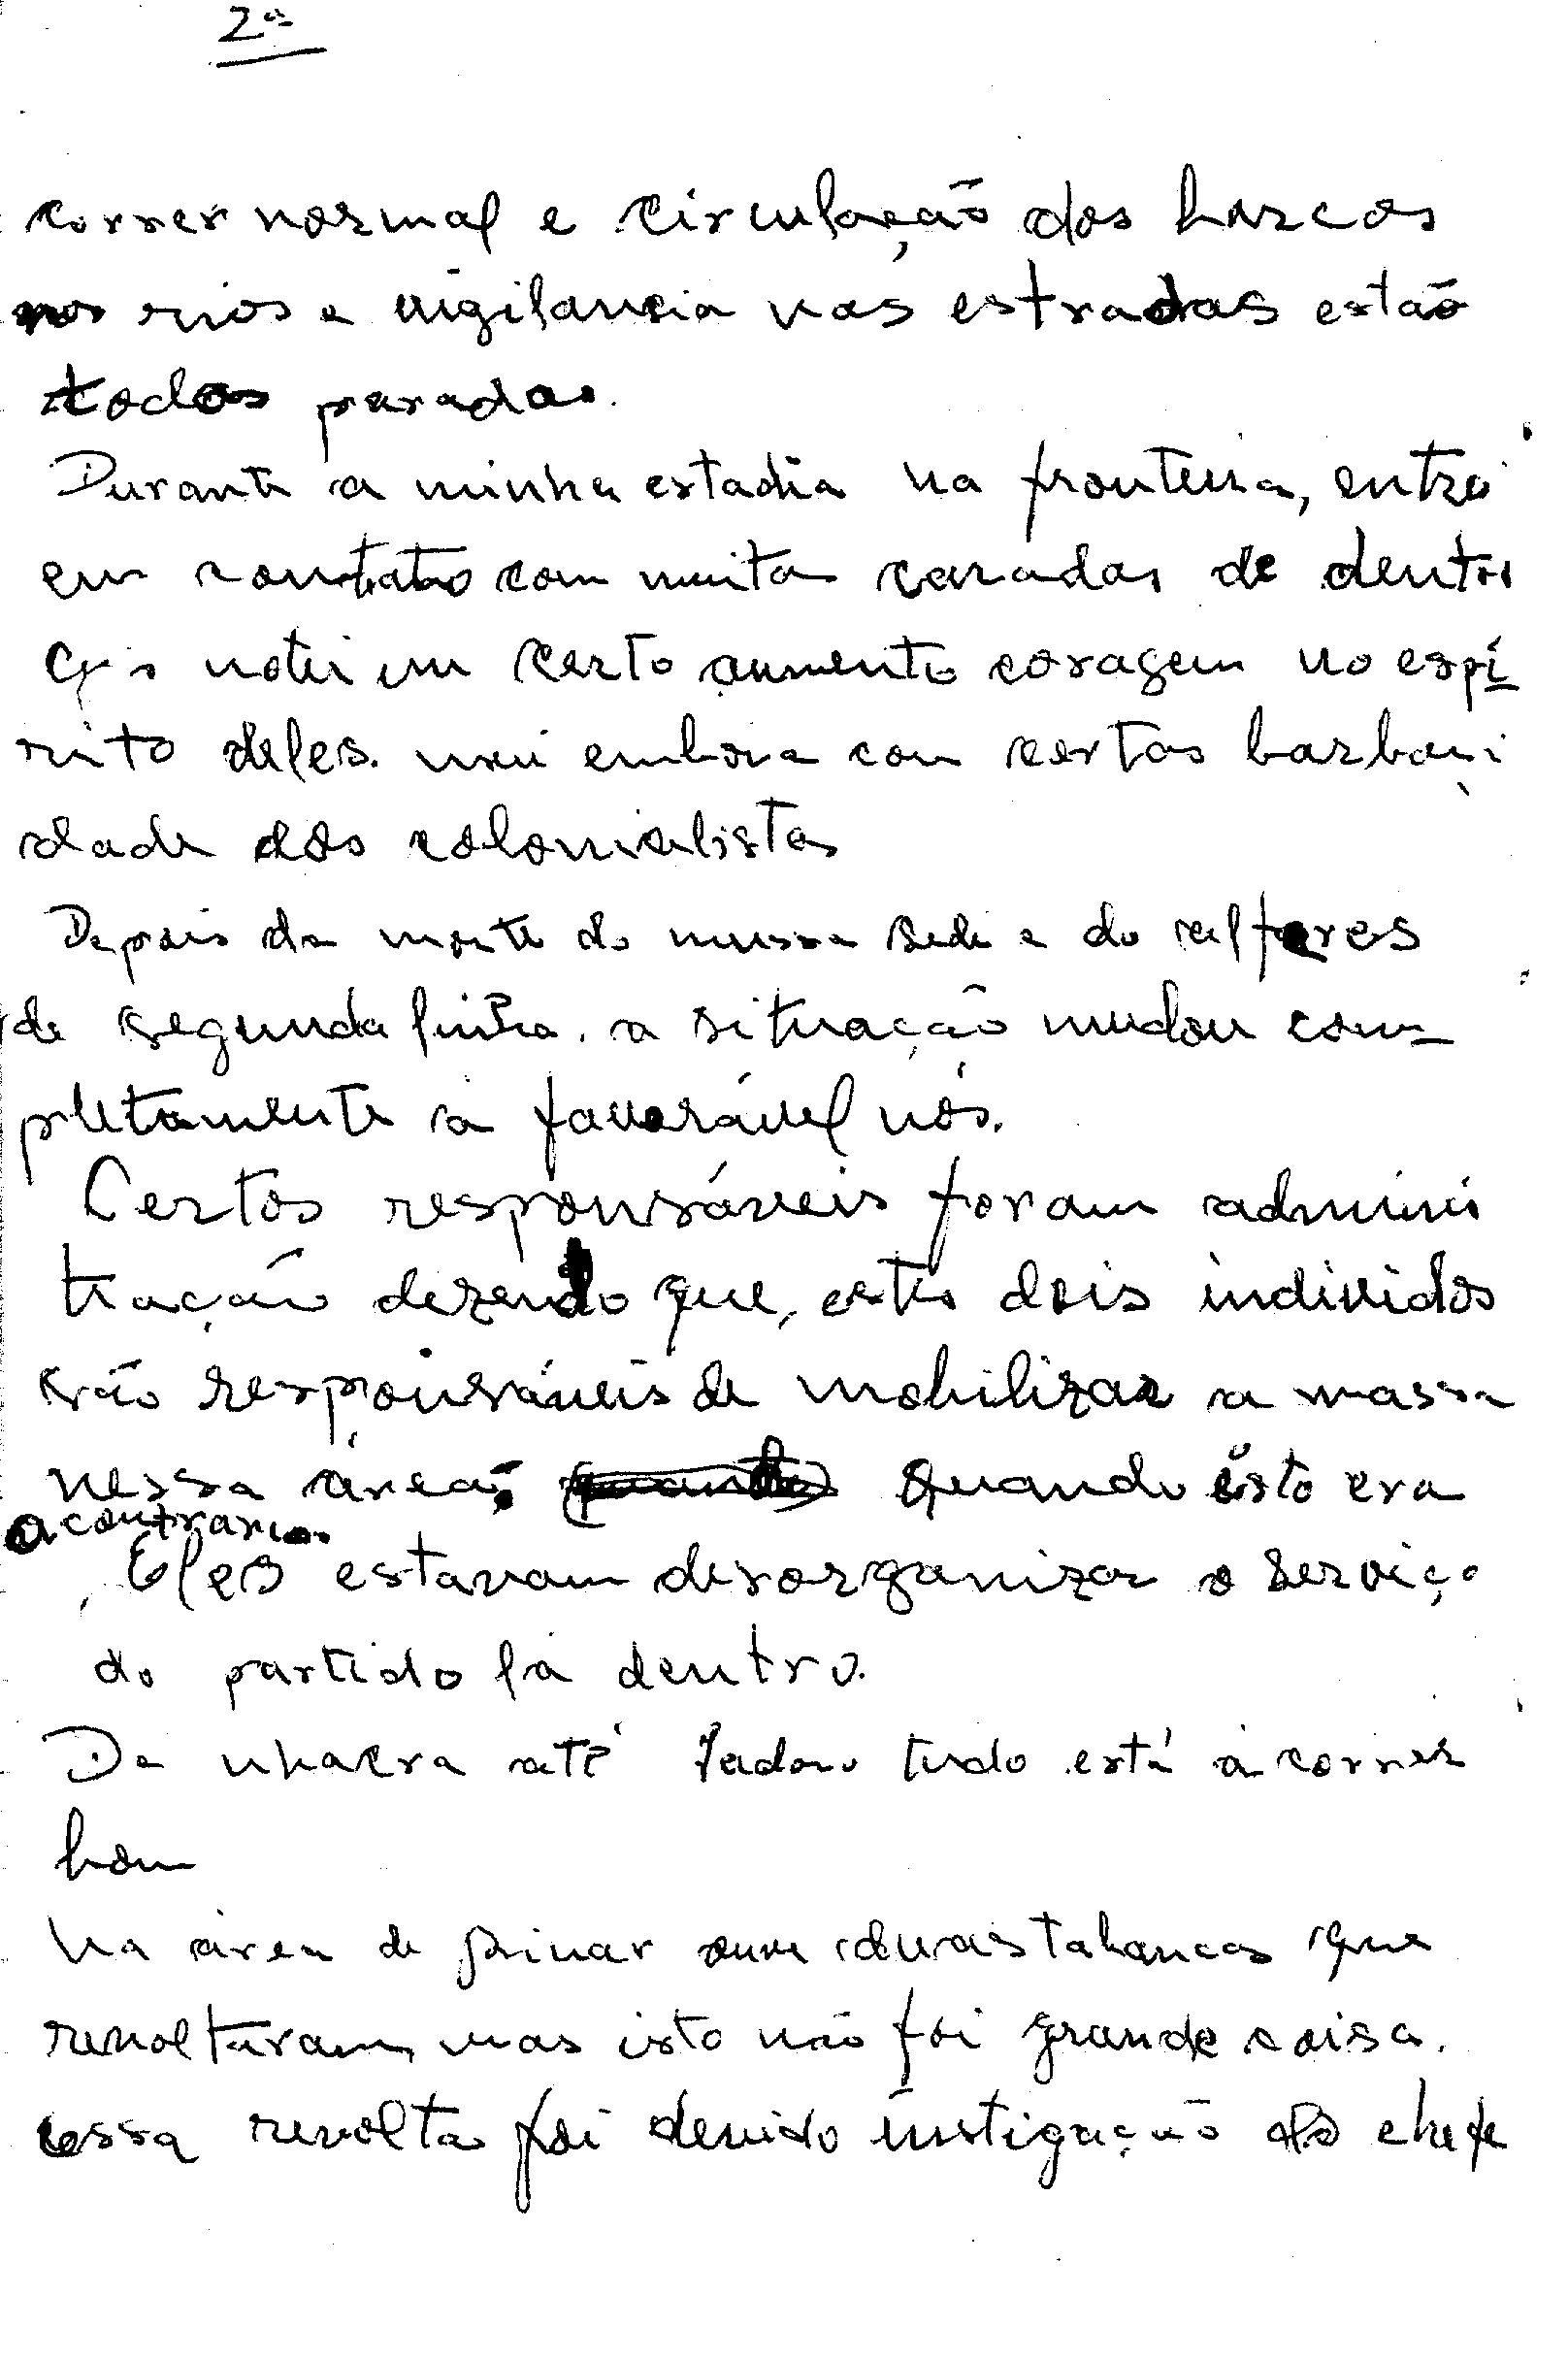 2ª
correr normal e circulação dos barcos
nos rios e vigilancia nas estradas estão
todas paradas.
Durante a minha estadia na fronteira, entrei
em contato com muita caradas de dentro
notei um certo aumento coragem no espí-
rito deles. embora com certas barbari
dade dos colonialistas
Depois da morte do mussa sede e do alferes
de segunda linha. a situação mudou com-
pletamente a favorável nós.
Certos responsáveis foram adminis
tração dezendo que, estes dois individos
são responsáveis de mobilizar a massa
nessa área, quando isto era
acontrario.
Eles estavam desorganizar o serviço
do partido lá dentro.
De nhacra até tudo está a correr
bom
Na área de duas tabancas que
revoltaram, mas isto não foi grande coisa.
essa revolta foi devido instigação do chefe